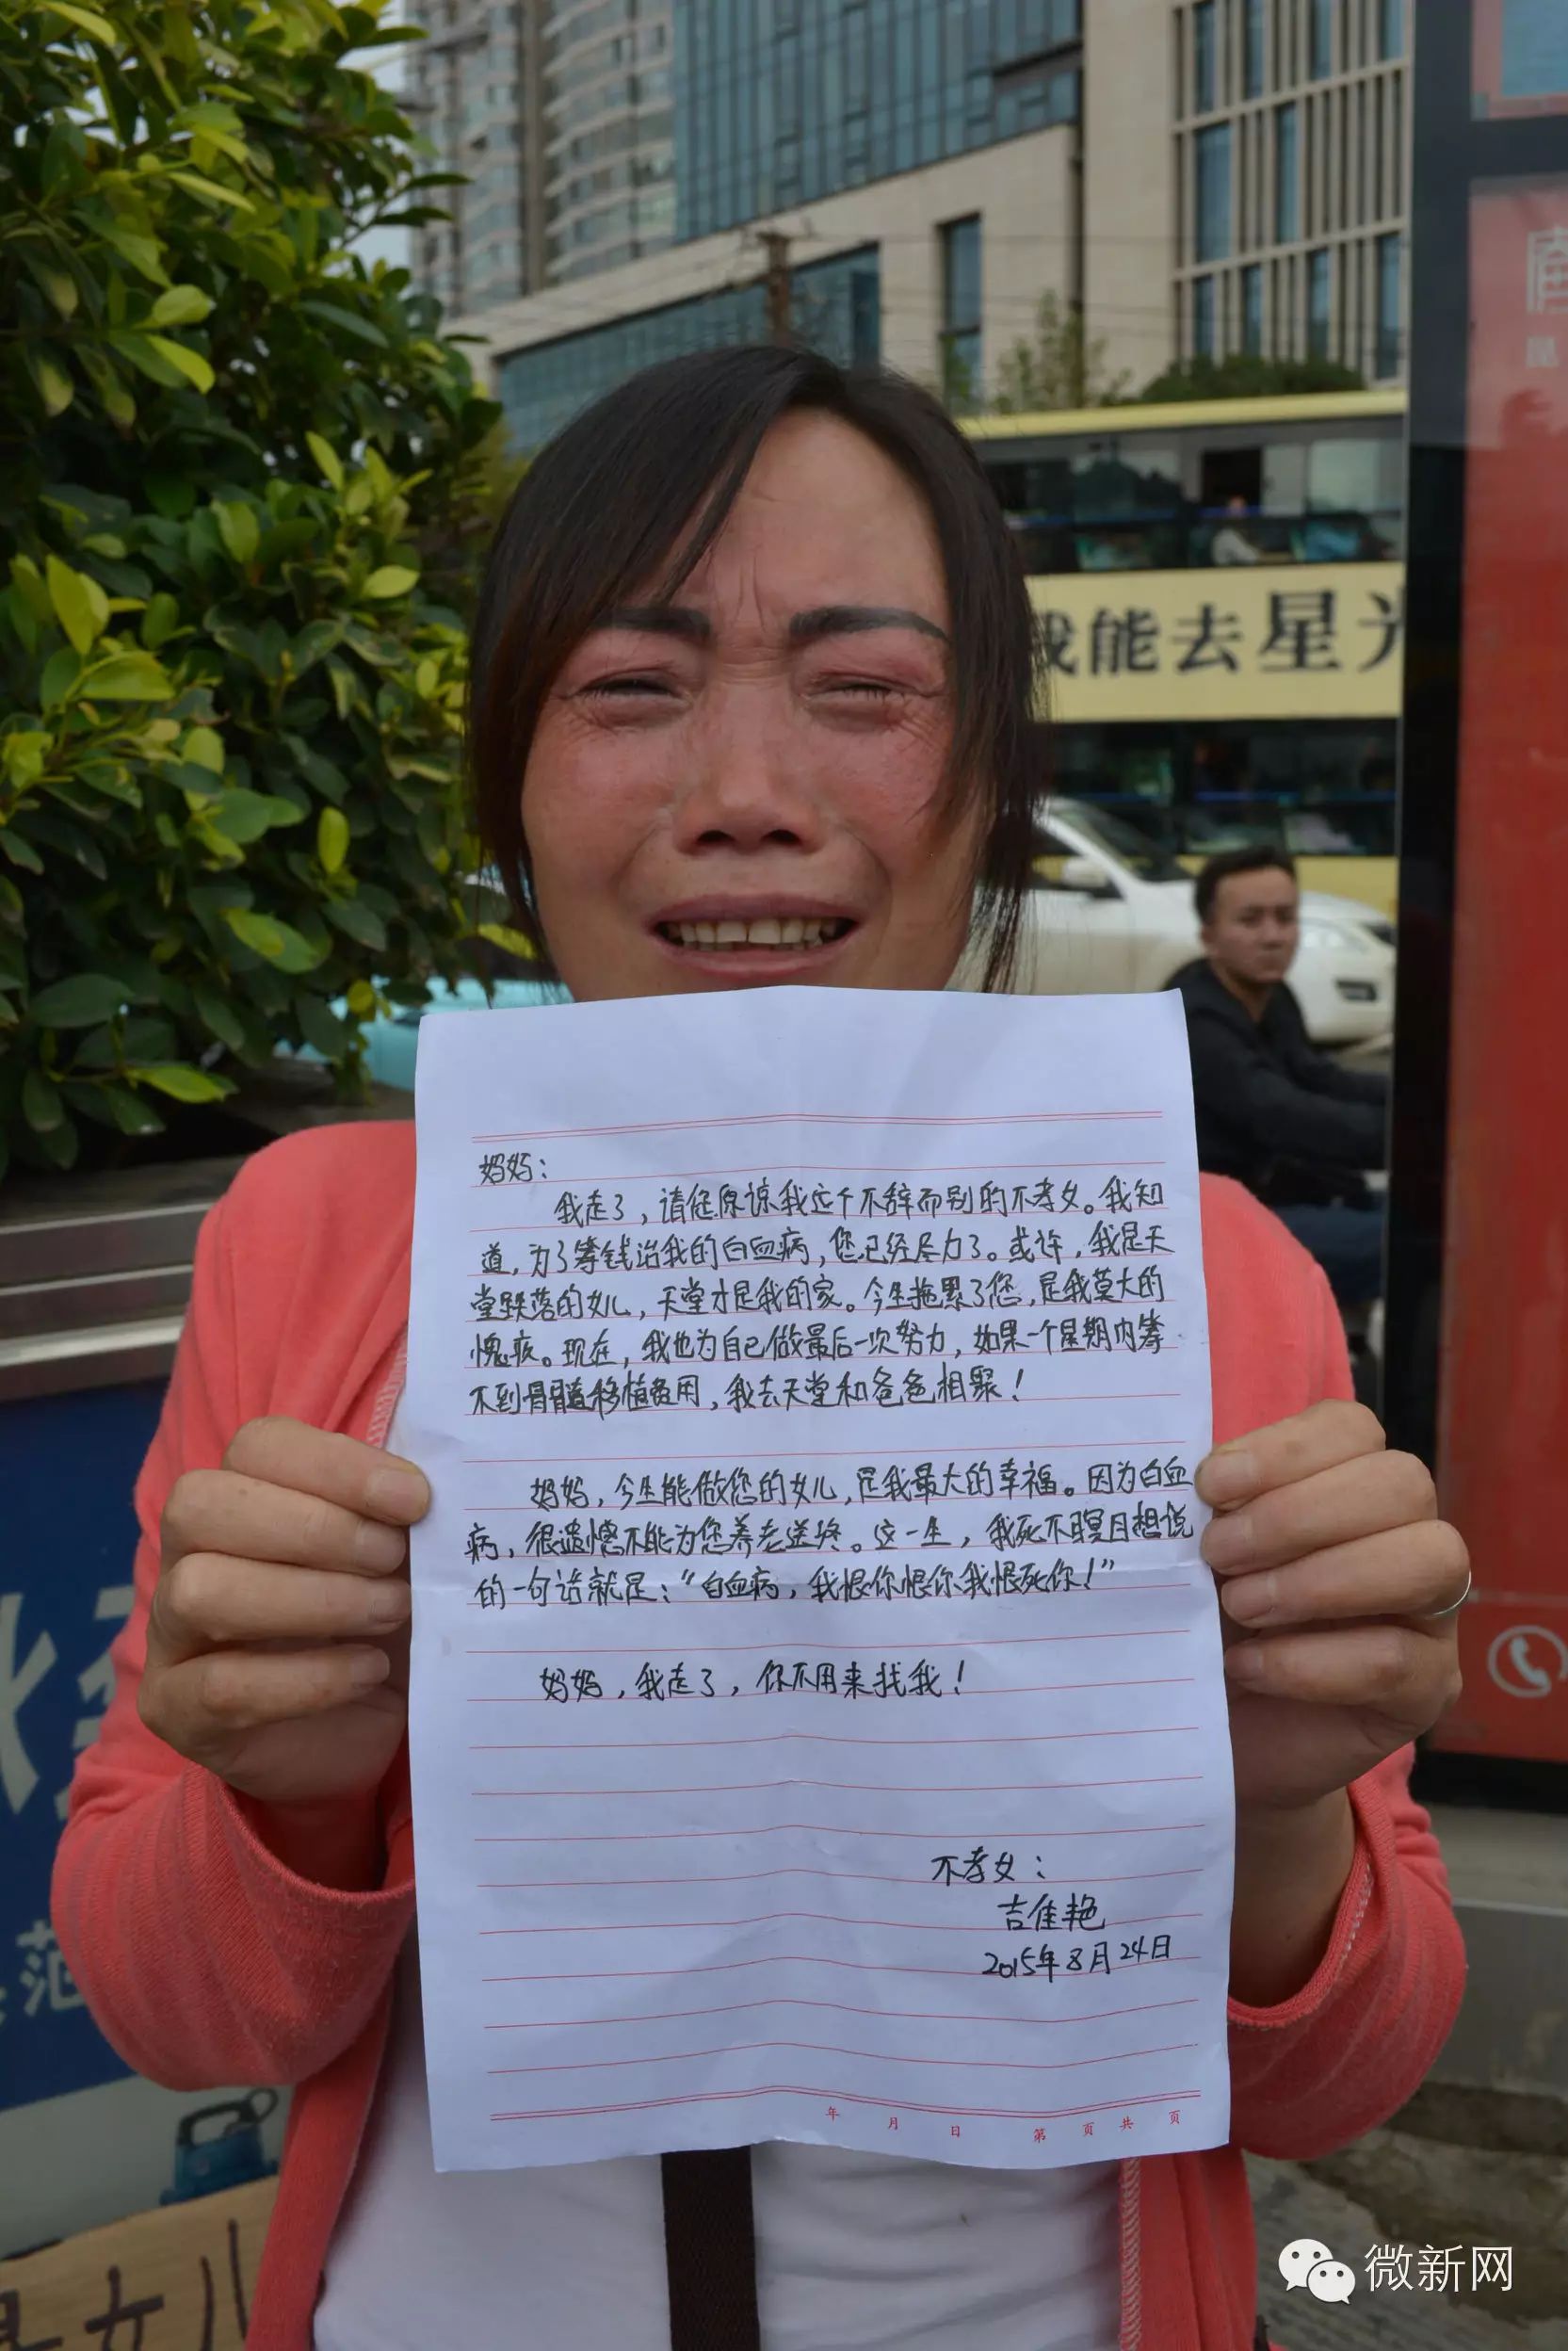 我能去星光
妈妈：
我走了，请您原谅我这个不辞而别的不孝女。我知
道，为了筹钱治我的白血病，您已经尽力了。或许，我是天
堂跌落的女儿，天堂才是我的家。今生拖累了您，是我莫大的
愧疚。现在，我也为自己做最后一次努力，如果一个星期内筹
不到骨髓移植费用，我去天堂和爸爸相聚！
妈妈，今生能做您的女儿，是我最大的幸福。因为白血
病，很遗憾不能为您养老送终。这一生，我死不瞑目想说
的一句话就是：“白血病，我恨你恨你我恨死你！”
妈妈，我走了，你不用来找我！
不孝女：
吉佳艳
2015年8月24日
年 月 日 第 页 共 页
范
女儿
微新网